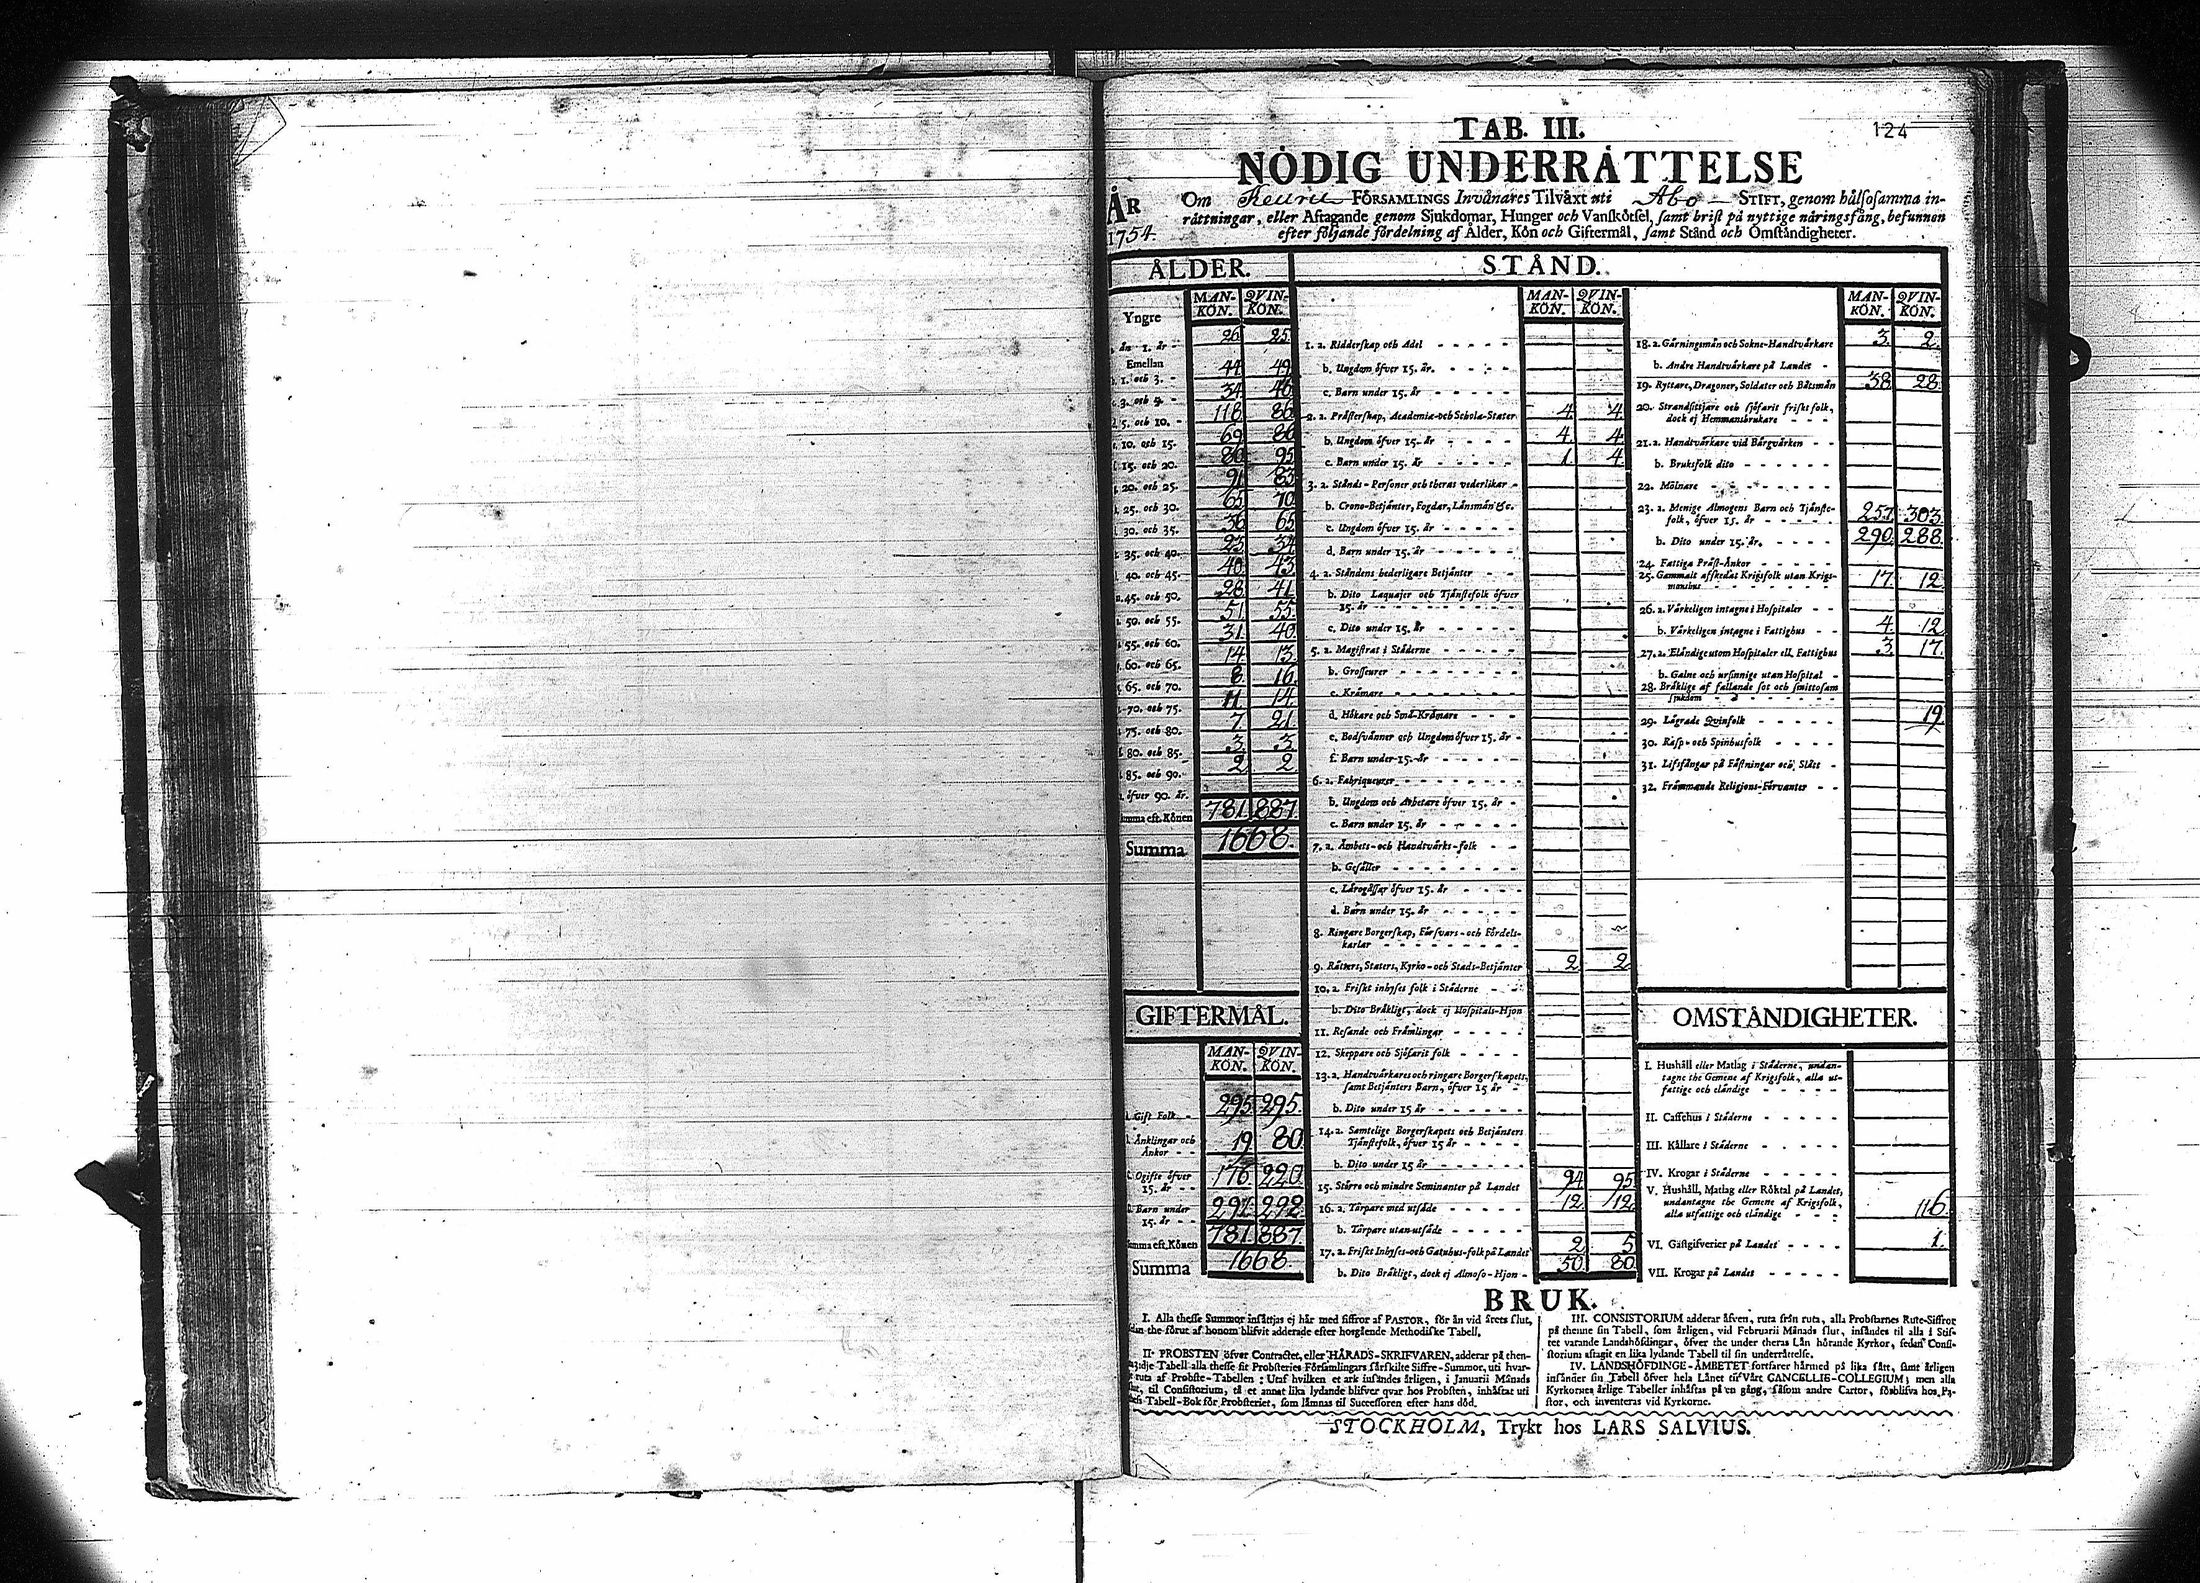 TAB. III.
124
NÖDIG UNDERRÄTTELSE
ÅR
1754.
Om Keuru FÖRSAMLINGS Invånares Tilväxt uti Åbo STIFT, genom hälsosamma in-
rättningar, eller Aftagande genom Sjukdomar, Hunger och Vanskötsel, samt brist på nyttige näringsfång, befunnen
efter följande fördelning af Ålder, Kön och Giftermål, samt Stånd och Omständigheter.
ÅLDER.
MAN-KÖN. QVIN-KÖN.
Yngre
än 1. år 26 25
Emellan
1. och 3. 44 49
3. och 5. 34 46
5. och 10. 118 86
10. och 15. 69 86
15. och 20. 80 95
20. och 25. 91 83
25. och 30. 65 70
30. och 35. 36 65
35. och 40. 23 34
40. och 45. 40 43
45. och 50. 28 41
50. och 55. 51 55
55. och 60. 31 40
60. och 65. 14 13
65. och 70. 8 16
70. och 75. 11 14
75. och 80. 7 21
80. och 85. 3 3
85. och 90. 2 2
öfver 90. år.
Summa eft. Könen 781. 887.
Summa 1668.
GIFTERMÅL.
MAN-KÖN. QVIN-KÖN.
Gift Folk 295 295.
Änklingar och Änkor 19 80
Ogifte öfver 15. år 176 220
Barn under 15. år 291 292
Summa eft. Könen 781. 887.
Summa 1668.
STÅND.
MAN-KÖN. QVIN-KÖN.
1. a. Ridderskap och Adel
b. Ungdom öfver 15. år.
c. Barn under 15. år
2. a. Prästerskap, Academiæ-och Scholæ-Stater 4. 4
b. Ungdom öfver 15. år 4. 4
c. Barn under 15. år 1. 4
3. a. Stånds-Personer och theras vederlikar
b. Crono-Betjänter, Fogdar, Länsmän &c.
c. Ungdom öfver 15. år
d. Barn under 15. år
4. a. Ståndens hederligare Betjänter
b. Dito Laquajer och Tjänstefolk öfver
15. år
c. Dito under 15. år
5. a. Magistrat i Städerne
b. Grosseurer
c. Krämare
d. Hökare och Små-Krämare
e. Bodsvänner och Ungdom öfver 15. år
f. Barn under 15. år
6. a. Fabriqueurer
b. Ungdom och Arbetare öfver 15. år
c. Barn under 15. år
7. a. Ämbets-och Handtvärks-folk
b. Gesäller
c. Lärogåssar öfver 15. år
d. Barn under 15. år
8. Ringare Borgerskap, Försvars-och Fördels-
karlar
9. Rätters, Staters, Kyrko-och Stads-Betjänter 2 2
10. a. Friskt inhyses folk i Städerne
b. Dito Bräkligt, dock ej Hospitals-Hjon
11. Resande och Främlingar
12. Skeppare och Sjöfarit folk
13. a. Handtvärkares och ringare Borgerskapets,
samt Betjänters Barn, öfver 15 år
b. Dito under 15 år
14. a. Samtelige Borgerskapets och Betjänters
Tjänstefolk, öfver 15 år
b. Dito under 15 år
15. Större och mindre Heminanter på Landet 94 95
16. a. Torpare med utsäde 12. 12
b. Torpare utan utsäde
17. a. Friskt Inhyses-och Gatuhus-folk på Landet 2 5
b. Dito Bräkligt, dock ej Almoso-Hjon 50. 80
MAN-KÖN. QVIN-KÖN.
18. a. Gärningsmän och Sokne-Handtvärkare 3. 2.
b. Andre Handtvärkare på Landet
19. Ryttare, Dragoner, Soldater och Båtsmän 38 28
20. Strandsittjare och sjöfarit friskt folk,
dock ej Hemmansbrukare
21. a. Handtvärkare vid Bärgvärken
b. Bruksfolk dito
22. Mölnare
23. a. Menige Almogens Barn och Tjänste-
folk, öfver 15. år 257. 303
b. Dito under 15. år. 290 288
24. Fattiga Präst-Änkor
25. Gammalt afskedat Krigsfolk utan Krigs-
manshus 17. 12
26. a. Värkeligen intagne i Hospitaler
b. Värkeligen intagne i Fattighus 4. 12
27. a. Eländige utom Hospitaler ell. Fattighus 3 17.
b. Galne och ursinnige utan Hospital
28. Bräklige af fallande sot och smittosam
sjukdom
29. Lägrade Qvinfolk 19
30. Rasp-och Spinhusfolk
31. Lifsfångar på Fästningar och Slätt
32. Främmande Religions-Förvanter
OMSTÄNDIGHETER.
I. Hushåll eller Matlag i Städerne, undan-
tagne the Gemene af Krigsfolk, alla ut-
fattige och eländige
II. Caffehus i Städerne
III. Källare i Städerne
IV. Krogar i Städerne
V. Hushåll, Matlag eller Röktal på Landet,
undantagne the Gemene af Krigsfolk,
alla utfattige och eländige 116.
VI. Gästgifverier på Landet 1.
VII. Krogar på Landet
BRUK.
I. Alla thesse Summor insättjas ej här med siffror af PASTOR, för än vid årets slut,
sedan the förut af honom blifvit adderade efter hosgående Methodiske Tabell.
II. PROBSTEN öfver Contractet, eller HÄRADS-SKRIFVAREN, adderar på then-
na idje Tabell alla thesse sit Probsteries Församlingars särskilte Siffre-Summor, uti hvar-
t ruta af Probste-Tabellen: Utaf hvilken et ark insändes årligen, i Januarii Månads
slut, til Consistorium, tå et annat lika lydande blifver qvar hos Probsten, inhäftat uti
Tabell-Bok för Probsteriet, som lämnas til Successoren efter hans död.
III. CONSISTORIUM adderar äfven, ruta från ruta, alla Probstarnes Rute-Siffror
på thenne sin Tabell, som årligen, vid Februarii Månads slut, insändes til alla i Stif-
tet varande Landshöfdingar, öfver the under theras Län hörande Kyrkor, sedan Consi-
storium aftagit en lika lydande Tabell til sin underrättelse.
IV. LANDSHÖFDINGE-ÄMBETET fortfarer härmed på lika sätt, samt årligen
insänder sin Tabell öfver hela Länet til Vårt CANCELLIE-COLLEGIUM; men alla
Kyrkornes årlige Tabeller inhäftas på en gång, såsom andre Cartor, förblifva hos Pa-
stor, och inventeras vid Kyrkorne.
STOCKHOLM, Trykt hos LARS SALVIUS.